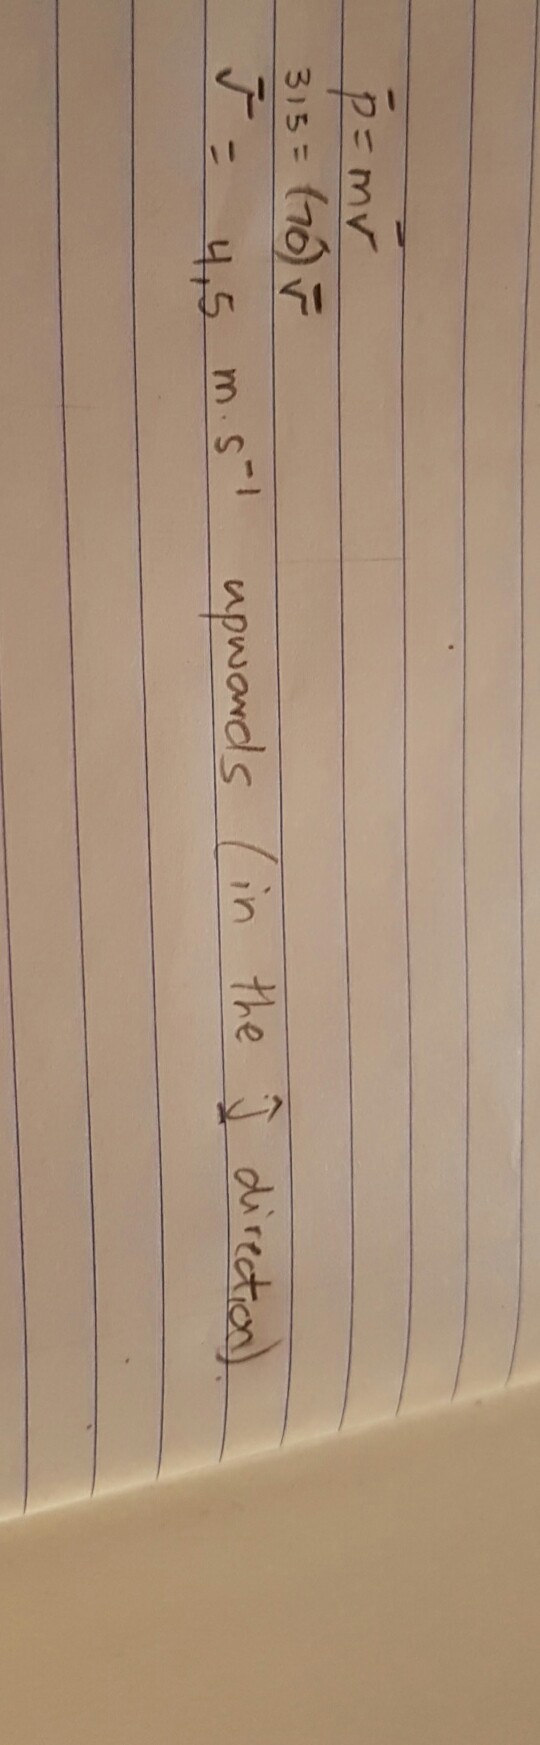 p̄ = mv̄
315 = (70)v̄
v̄ = 4,5 m·s⁻¹ upwards (in the ĵ direction).